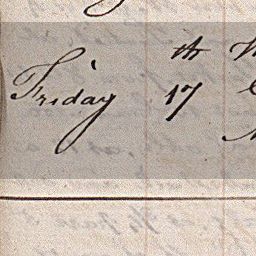 Friday 17th